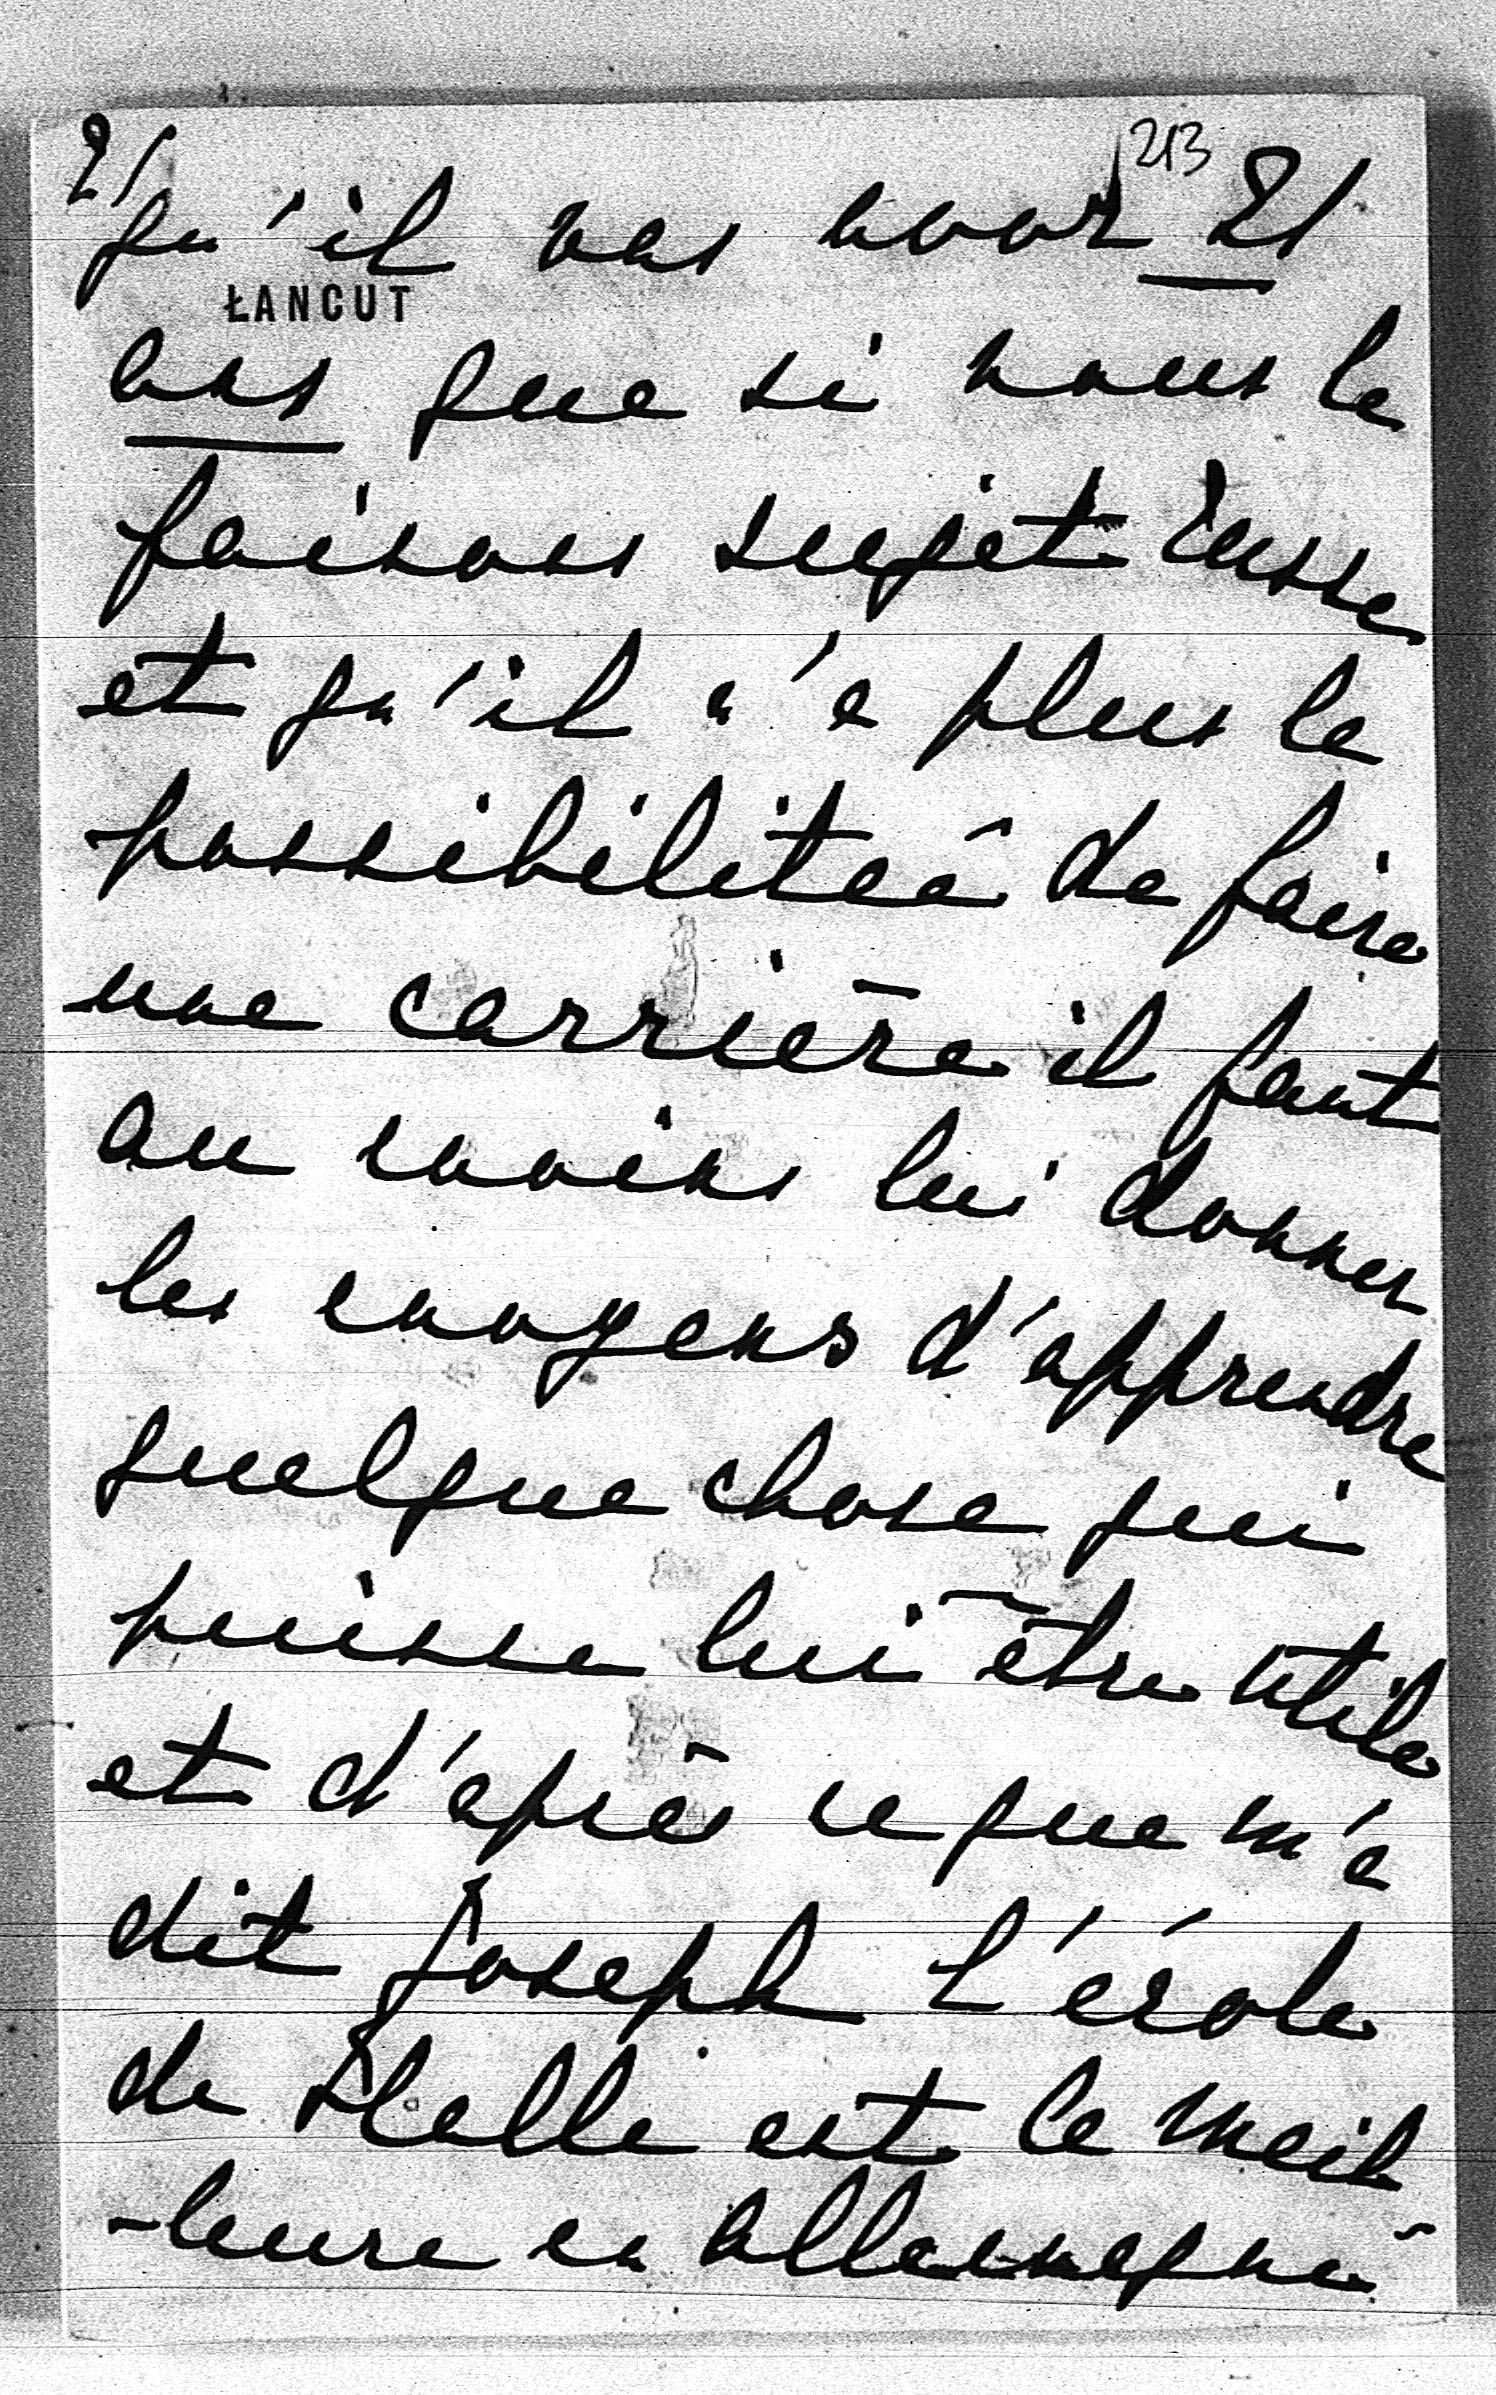 2/ 213
qu'il vas avoir 21
ŁANCUT
ans que si nous le
faisons sujet russe
et qu'il n'a plus la
possibiliteé de faire
une carrière il faut
au moins lui donner
les moyens d'apprendre
quelque chose qui
puisse lui être utile
et d'après ce que m'a
dit Joseph l'école
de Halle est la meil
-leure en Allemagne